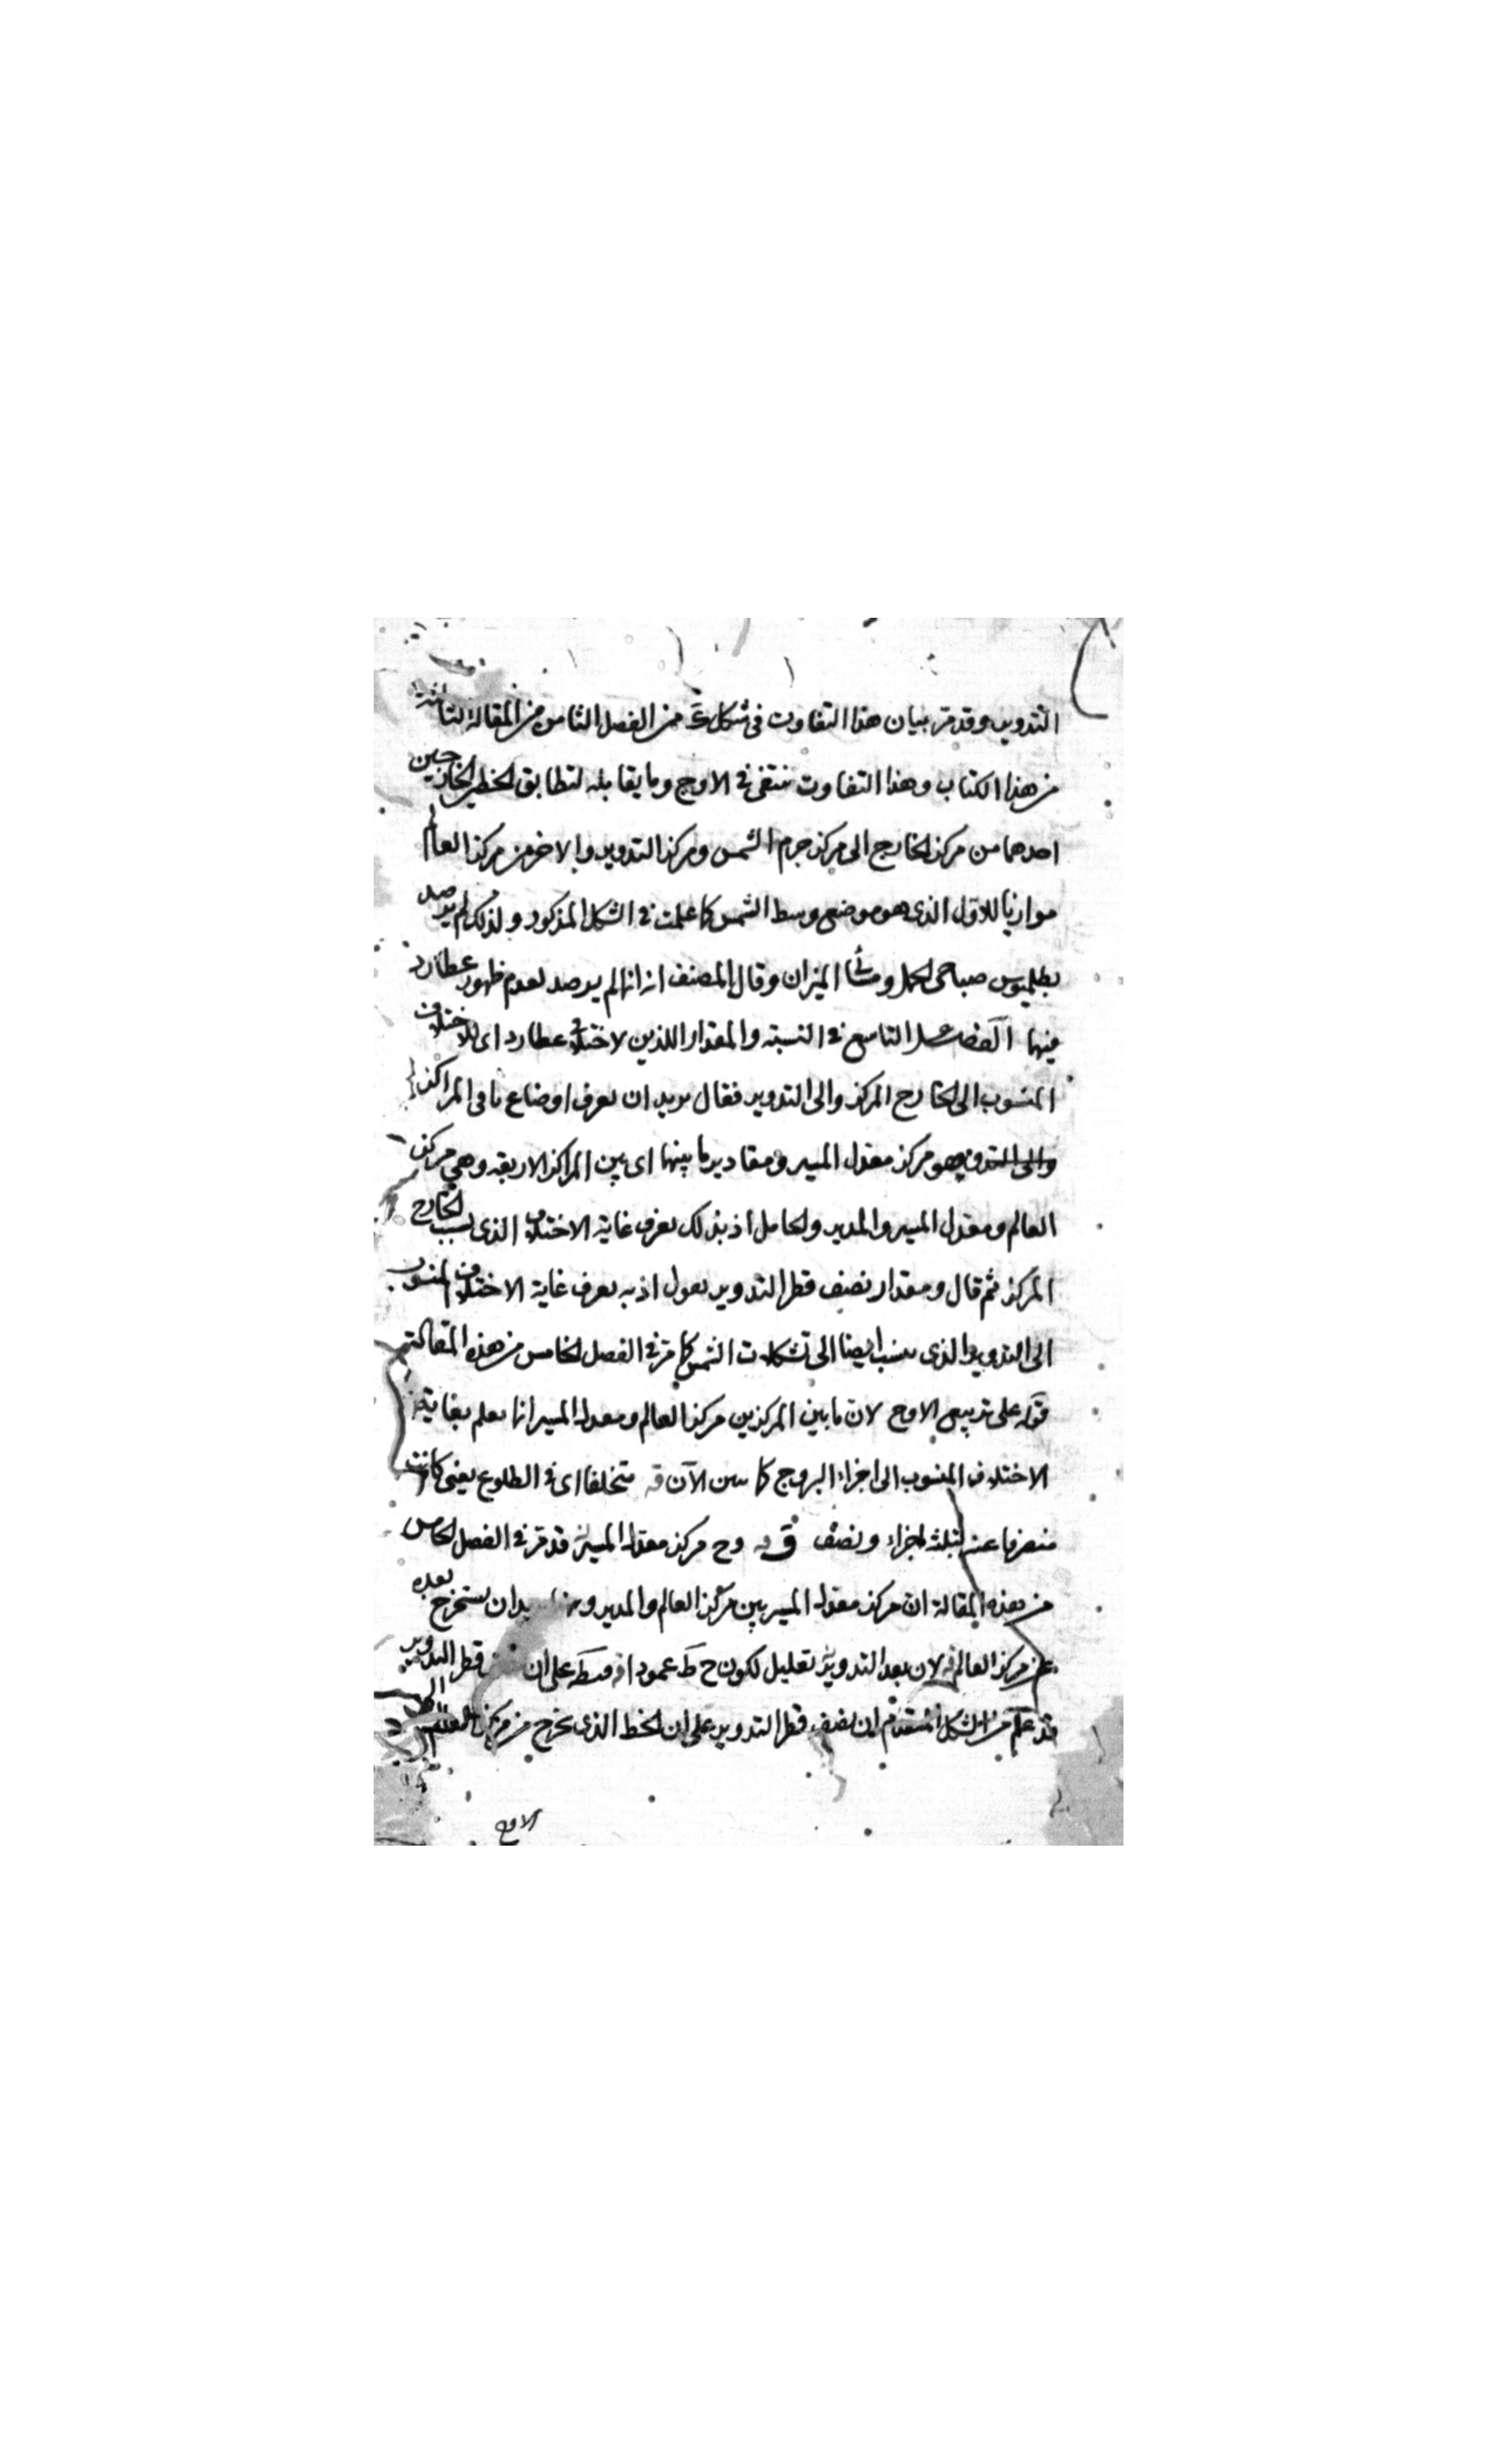 التدوير وقد مر بيان هذا التفاوت في شكل من الفصل الثامن من المقالة الثالثة
من هذا الكتاب وهذا التفاوت ينتفى في الاوج وما يقابله لتطابق الخطين الخارجين
احدهما من مركز الخارج الى مركز جرم الشمس ومركز التدوير والاخر من مركز العالم
موازيا للاول الذى هو موضع وسط الشمس كما علمت في الشكل المذكور ولذلك لم يرصد
بطلميوس صباحى الحمل ومسائى الميزان وقال المصنف انه انما لم يرصد لعدم ظهور عطارد
فيهما الفصل التاسع في النسبة والمقدار اللذين لاختلاف عطارد اى للاختلاف
المنسوب الى الخارج المركز والى التدوير فقال يريد ان نعرف اوضاع باقى المراكز
وهو مركز معدل المسير ومقادير ما بينها اى بين المراكز الاربعة وهي مركز
العالم ومعدل المسير والمدير والحامل اذ بذلك نعرف غاية الاختلاف الذى بسبب الخارج
المركز ثم قال ومقدار نصف قطر التدوير يعول اذ به يعرف غاية الاختلاف المنسوب
الى التدوير والذى ينسب ايضا الى تشكلات الشمس كما مر في الفصل الخامس من هذه المقالة
قوله على تربيعى الاوج لان ما بين المركزين مركز العالم ومعدل المسير انما يعلم بغاية
الاختلاف المنسوب الى اجزاء البروج كما يبين الآن قه متخلفا اى في الطلوع يعنى كانت
منصرفا عنه لثلثة اجزاء ونصف قه وح مركز معدل المسير قد مر في الفصل الخامس
من هذه المقالة ان مركز معدل المسير بين مركز العالم والمدير ان يستخرج بعده
عن مركز العالم لان بعد التدوير تعليل لكون ح ط عمودا على ان قطر التدوير
قد علم من الشكل المتقدم ان نصف قطر التدوير على ان الخط الذى يخرج من مركز العالم الى
الاوج